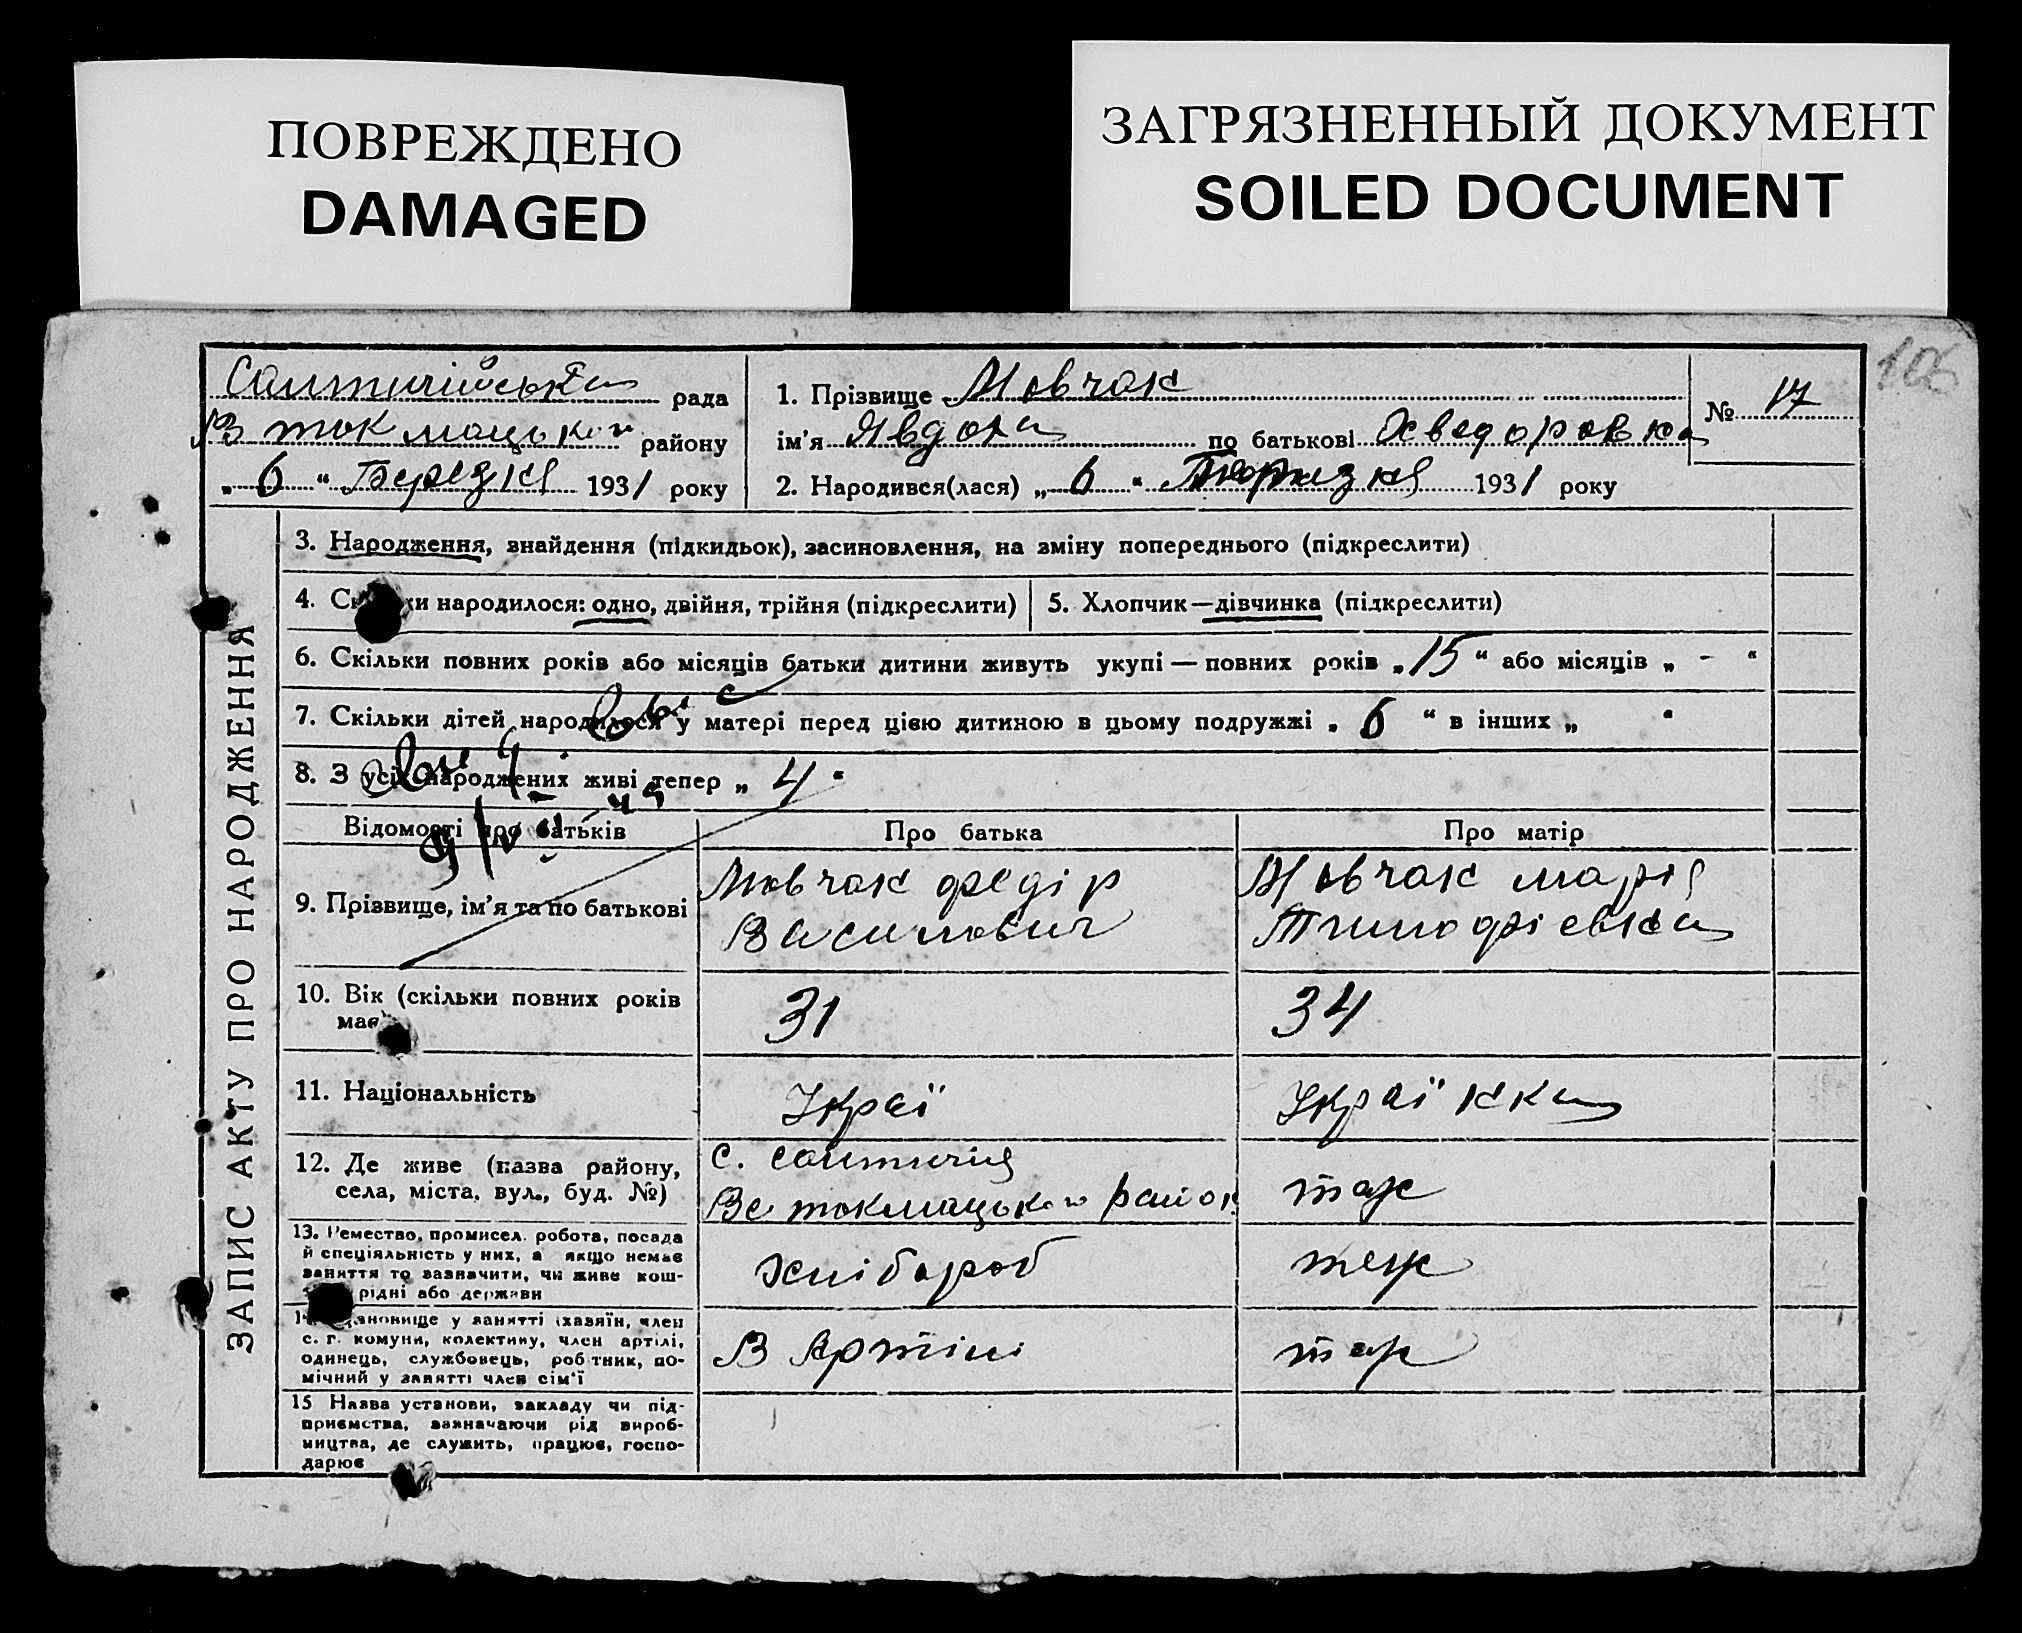 ПОВРЕЖДЕНО
DAMAGED
ЗАГРЯЗНЕННЫЙ ДОКУМЕНТ
SOILED DOCUMENT
106
Салтичійська рада
В токмацького району
„ 6 “ Березня 1931 року
1. Прізвище Мовчак
ім'я Явдоха по батькові Хведоровна
№ 17
2. Народився(лася) „ 6 “ Березня 1931 року
ЗАПИС АКТУ ПРО НАРОДЖЕННЯ
3. Народження, знайдення (підкидьок), засиновлення, на зміну попереднього (підкреслити)
4. Скільки народилося: одно, двійня, трійня (підкреслити)
5. Хлопчик—дівчинка (підкреслити)
6. Скільки повних років або місяців батьки дитини живуть укупі — повних років „ 15 “ або місяців „ - “
7. Скільки дітей народилося у матері перед цією дитиною в цьому подружжі „ 6 “ в інших „ “
8. З усіх народжених живі тепер „ 4 “
Відомості про батьків
Про батька
Про матір
9. Прізвище, ім'я та по батькові
Мовчак федір
Василович
Мовчак марія
Тимофієвна
10. Вік (скільки повних років
має)
31
34
11. Національність
Украї
Українка
12. Де живе (назва району,
села, міста, вул., буд. №)
с. салтичія
Ве токмацького район
таж
13. Ремество, промисел, робота, посада
й спеціяльність у них, а якщо немає
заняття то зазначити, чи живе кош-
рідні або держави
хлібороб
теж
14. Становище у занятті (хазяїн, член
с. г. комуни, колективу, член артілі,
одинець, службовець, робітник, по-
мічний у занятті член сім'ї
В Артілі
таж
15 Назва установи, закладу чи під-
приємства, зазначаючи рід вироб-
ництва, де служить, працює, госпо-
дарює